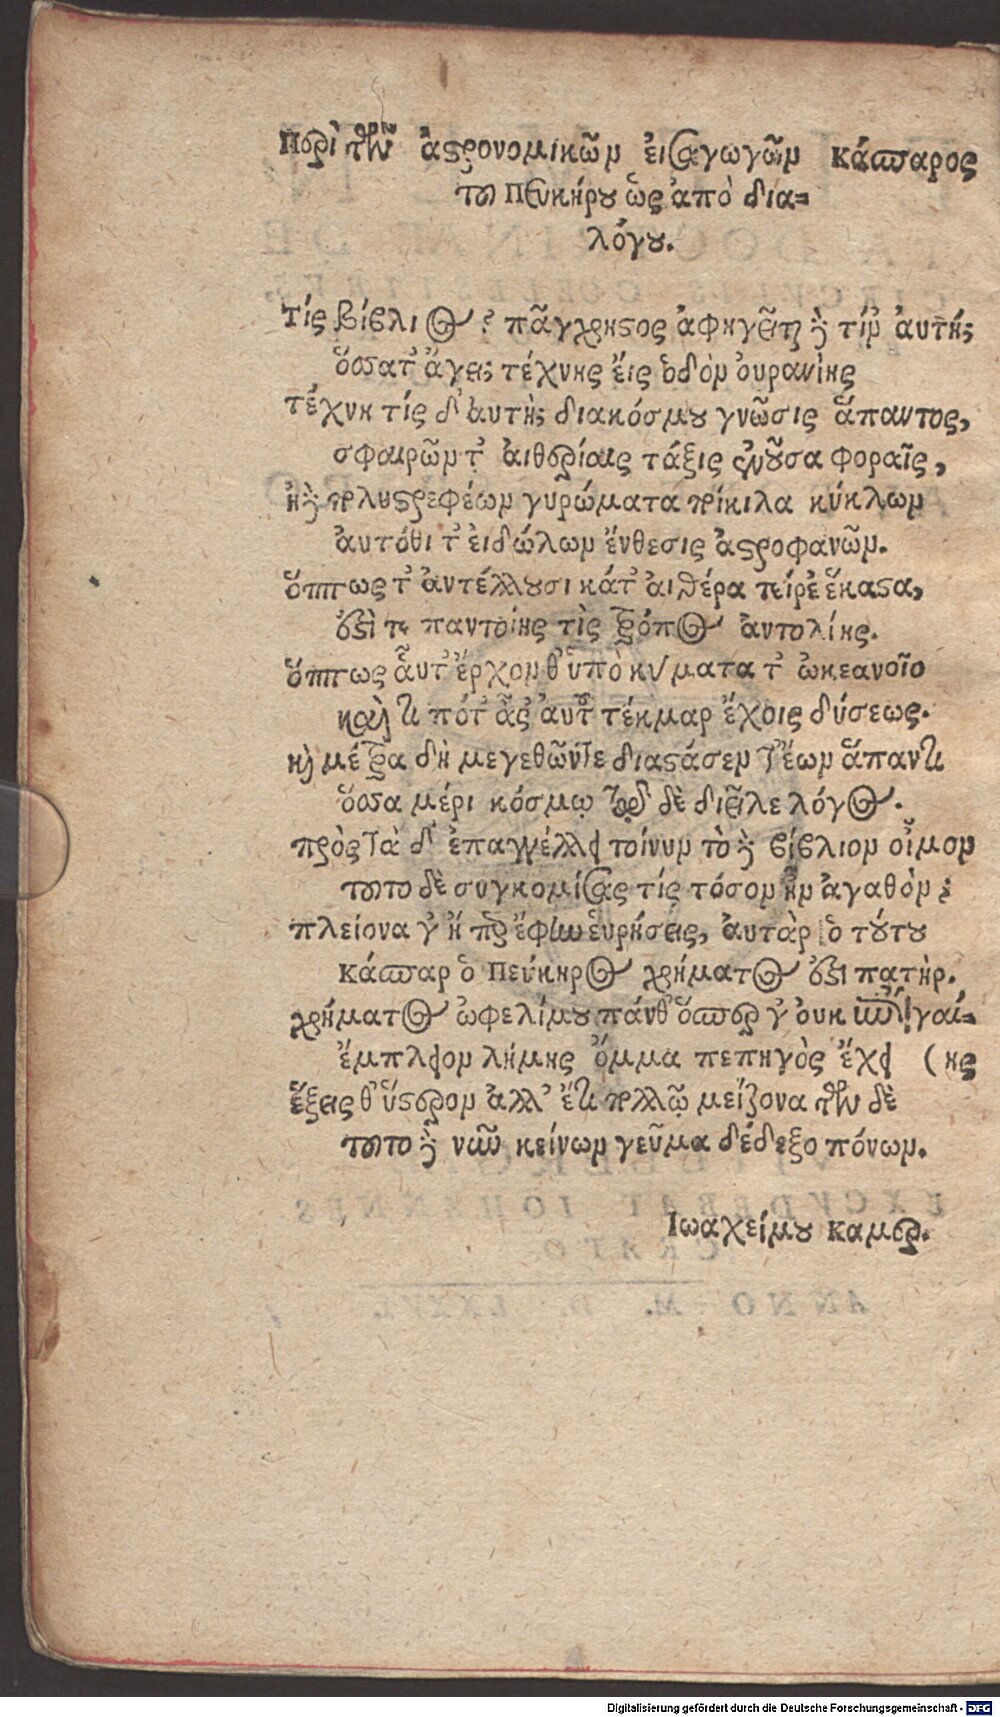 Περὶ τῶν ἀστρονομικῶν εἰσαγωγῶν Κάσπαρος
τοῦ Πευκήρου ὡς ἀπὸ δια-
λόγου.
Τίς βίβλιος; πάγχρηστος ἀφηγεῖται καὶ τίν αὐτή;
ὅσσατ' ἄγει; τέχνης εἰς ὁδὸν οὐρανίης
τέχνη τίς δ' αὐτή; διακόσμου γνῶσις ἅπαντος,
σφαιρῶν τ' αἰθερίαις τάξις φοραῖς,
πολυστρεφέων γυρώματα ποίκιλα κύκλων
αὐτόθι τ' εἰδώλων ἔνθεσις ἀστροφανῶν.
ὅππως τ' ἀντέλλουσι κάτ' αἰθέρα τείρε ἕκαστα,
ἐστὶ τε παντοίης τὶς τρόπος ἀντολίης.
ὅππως αὖτ' ἔρχονθ' ὑπὸ κύματα τ' ὠκεανοῖο
καὶ τι πότ' ἂν αὖ τέκμαρ ἔχοις δύσεως.
καὶ μέτρα δὴ μεγεθῶν τε διαστάσεων τέων ἅπαντι
ὅσσα μέρι κόσμῳ δὲ διεῖλε λόγος.
πρὸς τὰ δ' ἐπαγγέλλει τοίνυν τὸ καὶ βίβλιον οἶμον
τοῦτο δὲ συγκομίσας τίς τόσον ἦν ἀγαθὸν;
πλείονα γ' ἢ πρὶν ἔφην εὑρήσεις, αὐτὰρ ὁ τούτου
Κάσπαρ ὁ Πεύκηρος χρήματος ἐστι πατήρ.
χρήματος ὠφελίμου πάνθ' ὅσπερ γ' οὐκ ὑπὸ γαί-
ἔμπλεον λήμης ὄμμα πεπηγὸς ἔχει (ης
ἕξεις θ' ὕστερον ἀλλ' ἔτι πολλῷ μείζονα τῶν δὲ
τοῦτο καὶ νῦν κείνων γεῦμα δέδεξο πόνων.
Ἰωαχείμου Καμερ.
Digitalisierung gefördert durch die Deutsche Forschungsgemeinschaft - DFG